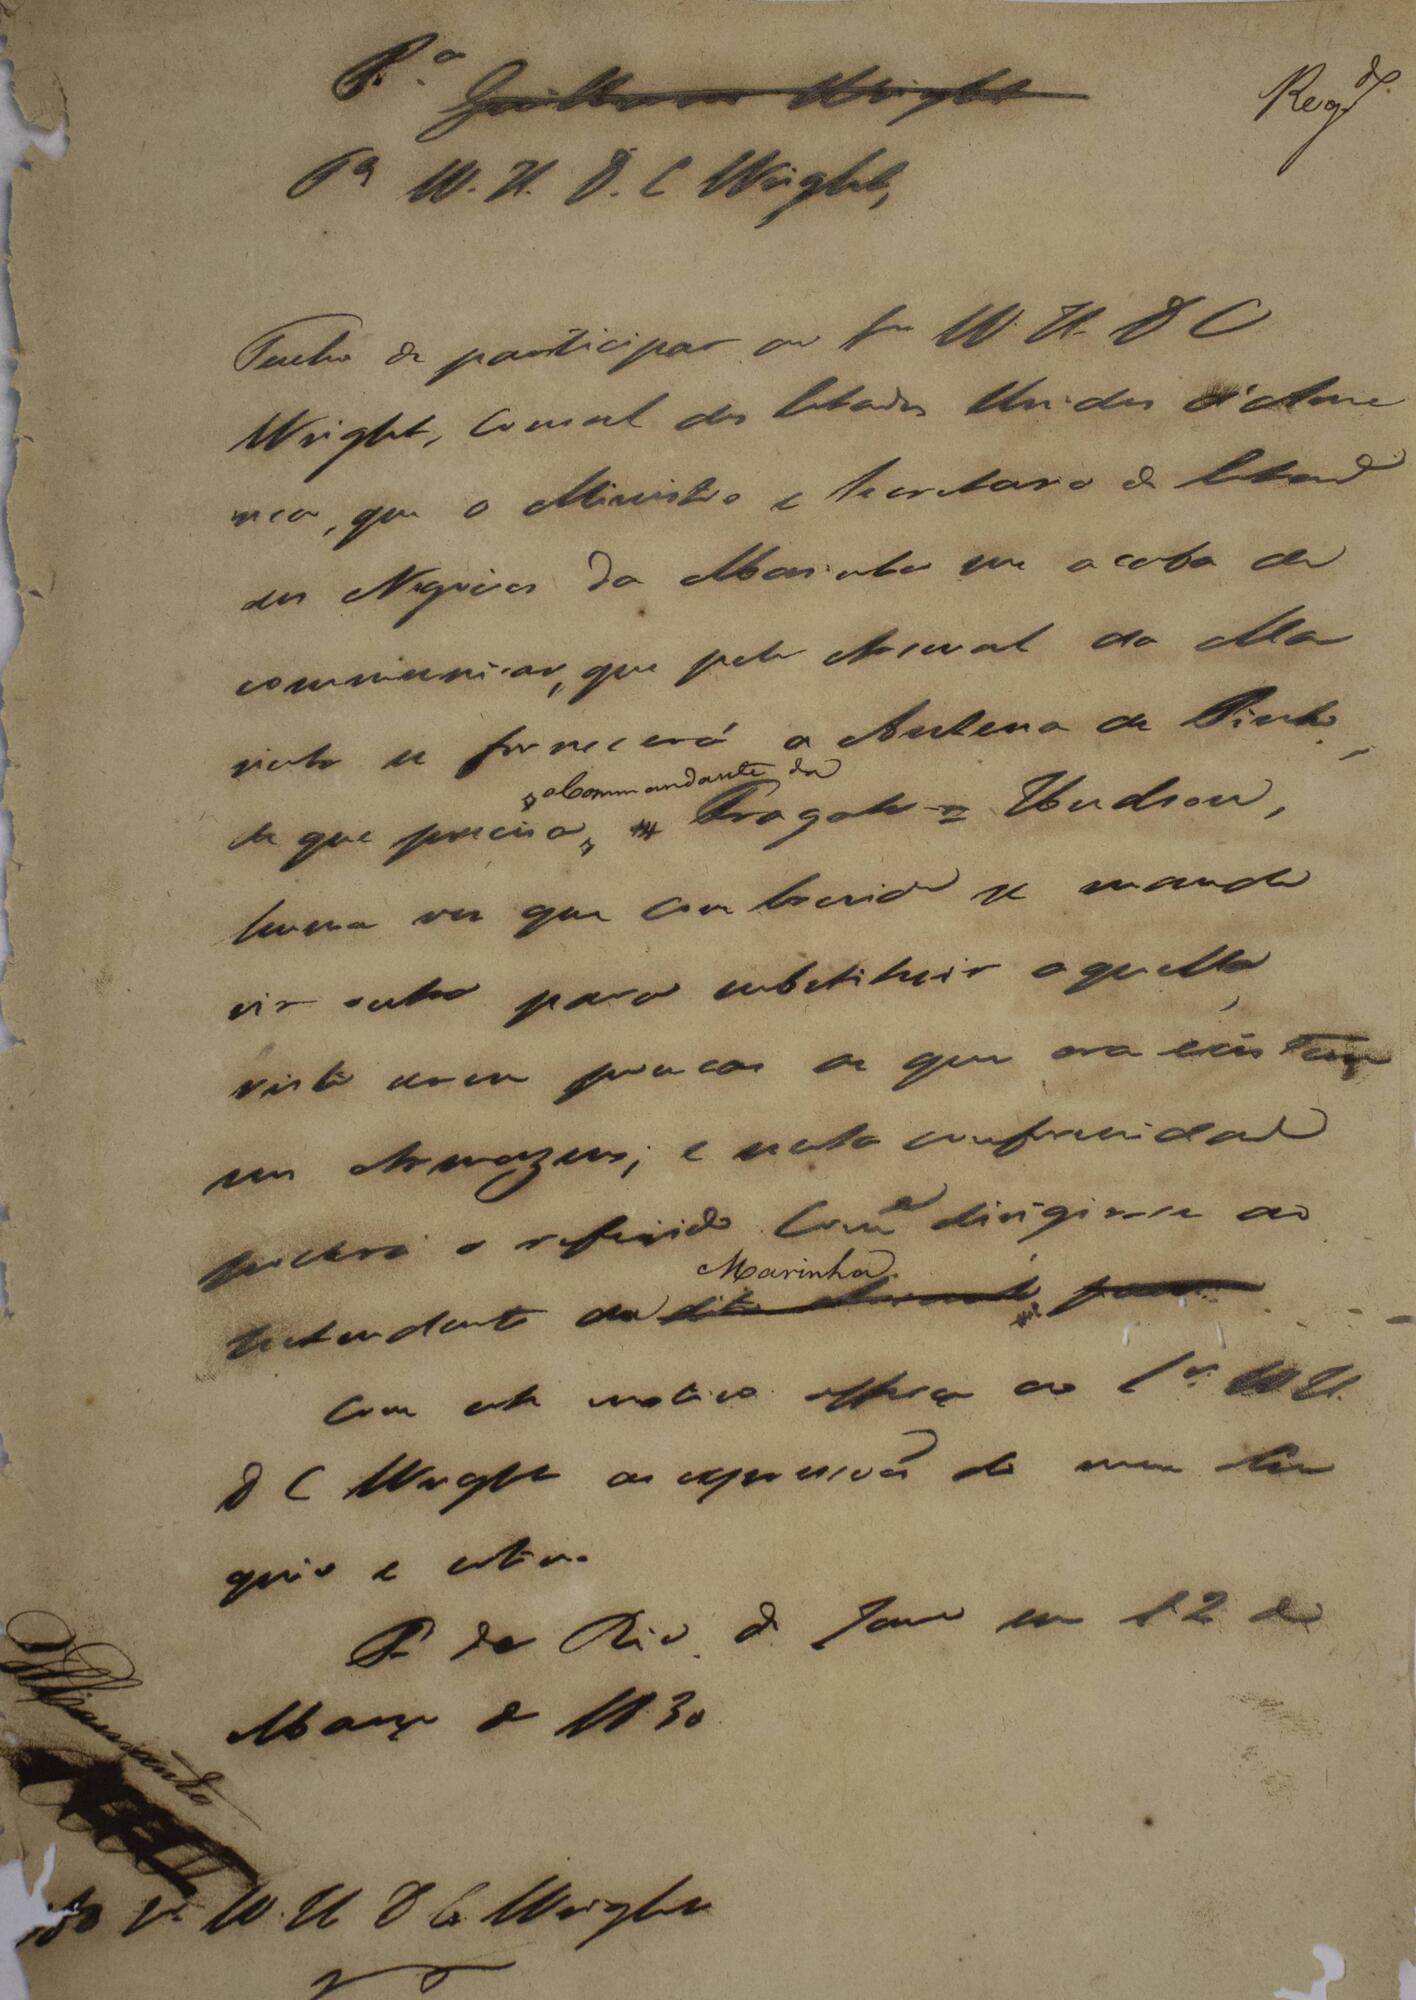 P.ª Guilherme Wright
Regdº.
Pª W. H. D. C Wright,
Tenho de participar ao Snr W. H. D C
Wright, Consul dos Estados Unidos d'Ame
rica, que o Ministro e Secretario de Estado
dos Negocios da Marinha me acaba de
communicar, que pelo Arsenal da Ma
rinha se fornecerá a Antena de Pinho,
o Commandante da
de que precisa, Fragata = Hudson,
huma vez que com brevidade se mande
vir outra para substituir aquella,
visto serem poucas as que ora existem
nos Armazens; e nesta conformidade
poderá o referido Comde dirigir-se ao
Marinha.
Intendente da dito Arsenal para
Com este motivo offereço ao Sr. W H.
D C Wright as expressoens do meu obse
quio e estima.
P. do Rio de Janro em 12 de
Março de 1830
Sr. W. H D C. Wright